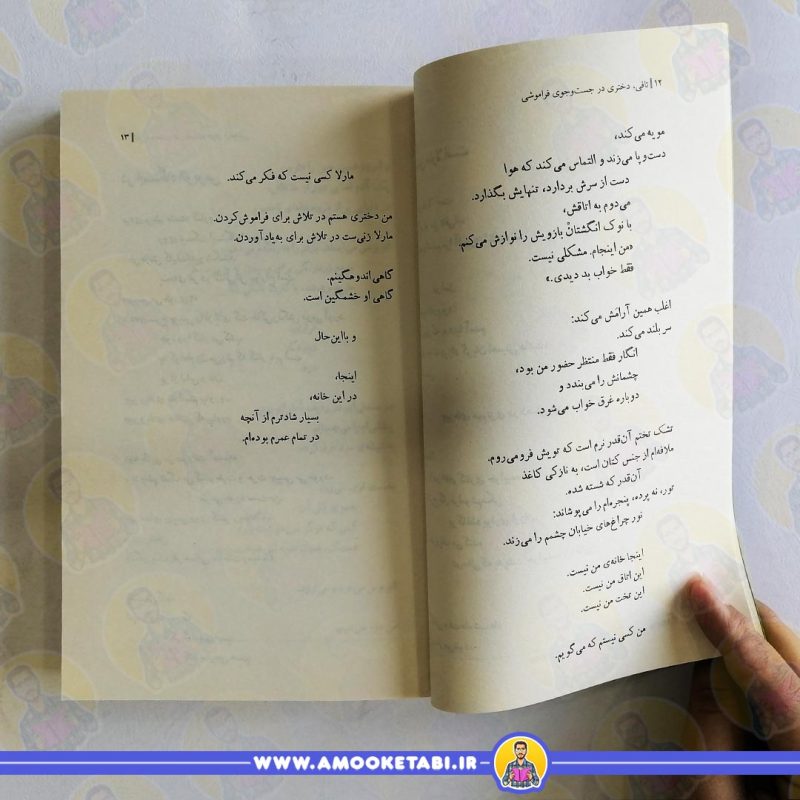 ۱۲ | تافی، دختری در جست‌وجوی فراموشی
مویه می‌کند،
دست‌وپا می‌زند و التماس می‌کند که هوا
دست از سرش بردارد، تنهایش بگذارد.
می‌دوم به اتاقش،
با نوک انگشتانْ بازویش را نوازش می‌کنم.
«من اینجام. مشکلی نیست.
فقط خواب بد دیدی.»
اغلب همین آرامش می‌کند:
سر بلند می‌کند.
انگار فقط منتظر حضور من بود،
چشمانش را می‌بندد و
دوباره غرق خواب می‌شود.
تشک تختم آن‌قدر نرم است که تویش فرو می‌روم.
ملافه‌ام از جنس کتان است، به نازکی کاغذ
آن‌قدر که شسته شده.
تور، نه پرده، پنجره‌ام را می‌پوشاند:
نور چراغ‌های خیابان چشمم را می‌زند.
اینجا خانه‌ی من نیست.
این اتاق من نیست.
این تخت من نیست.
من کسی نیستم که می‌گویم.
| ۱۳
مارلا کسی نیست که فکر می‌کند.
من دختری هستم در تلاش برای فراموش‌کردن.
مارلا زنی‌ست در تلاش برای به‌یادآوردن.
گاهی اندوهگینم.
گاهی او خشمگین است.
و بااین‌حال
اینجا،
در این خانه،
بسیار شادترم از آنچه
در تمام عمرم بوده‌ام.
WWW.AMOOKETABI.IR